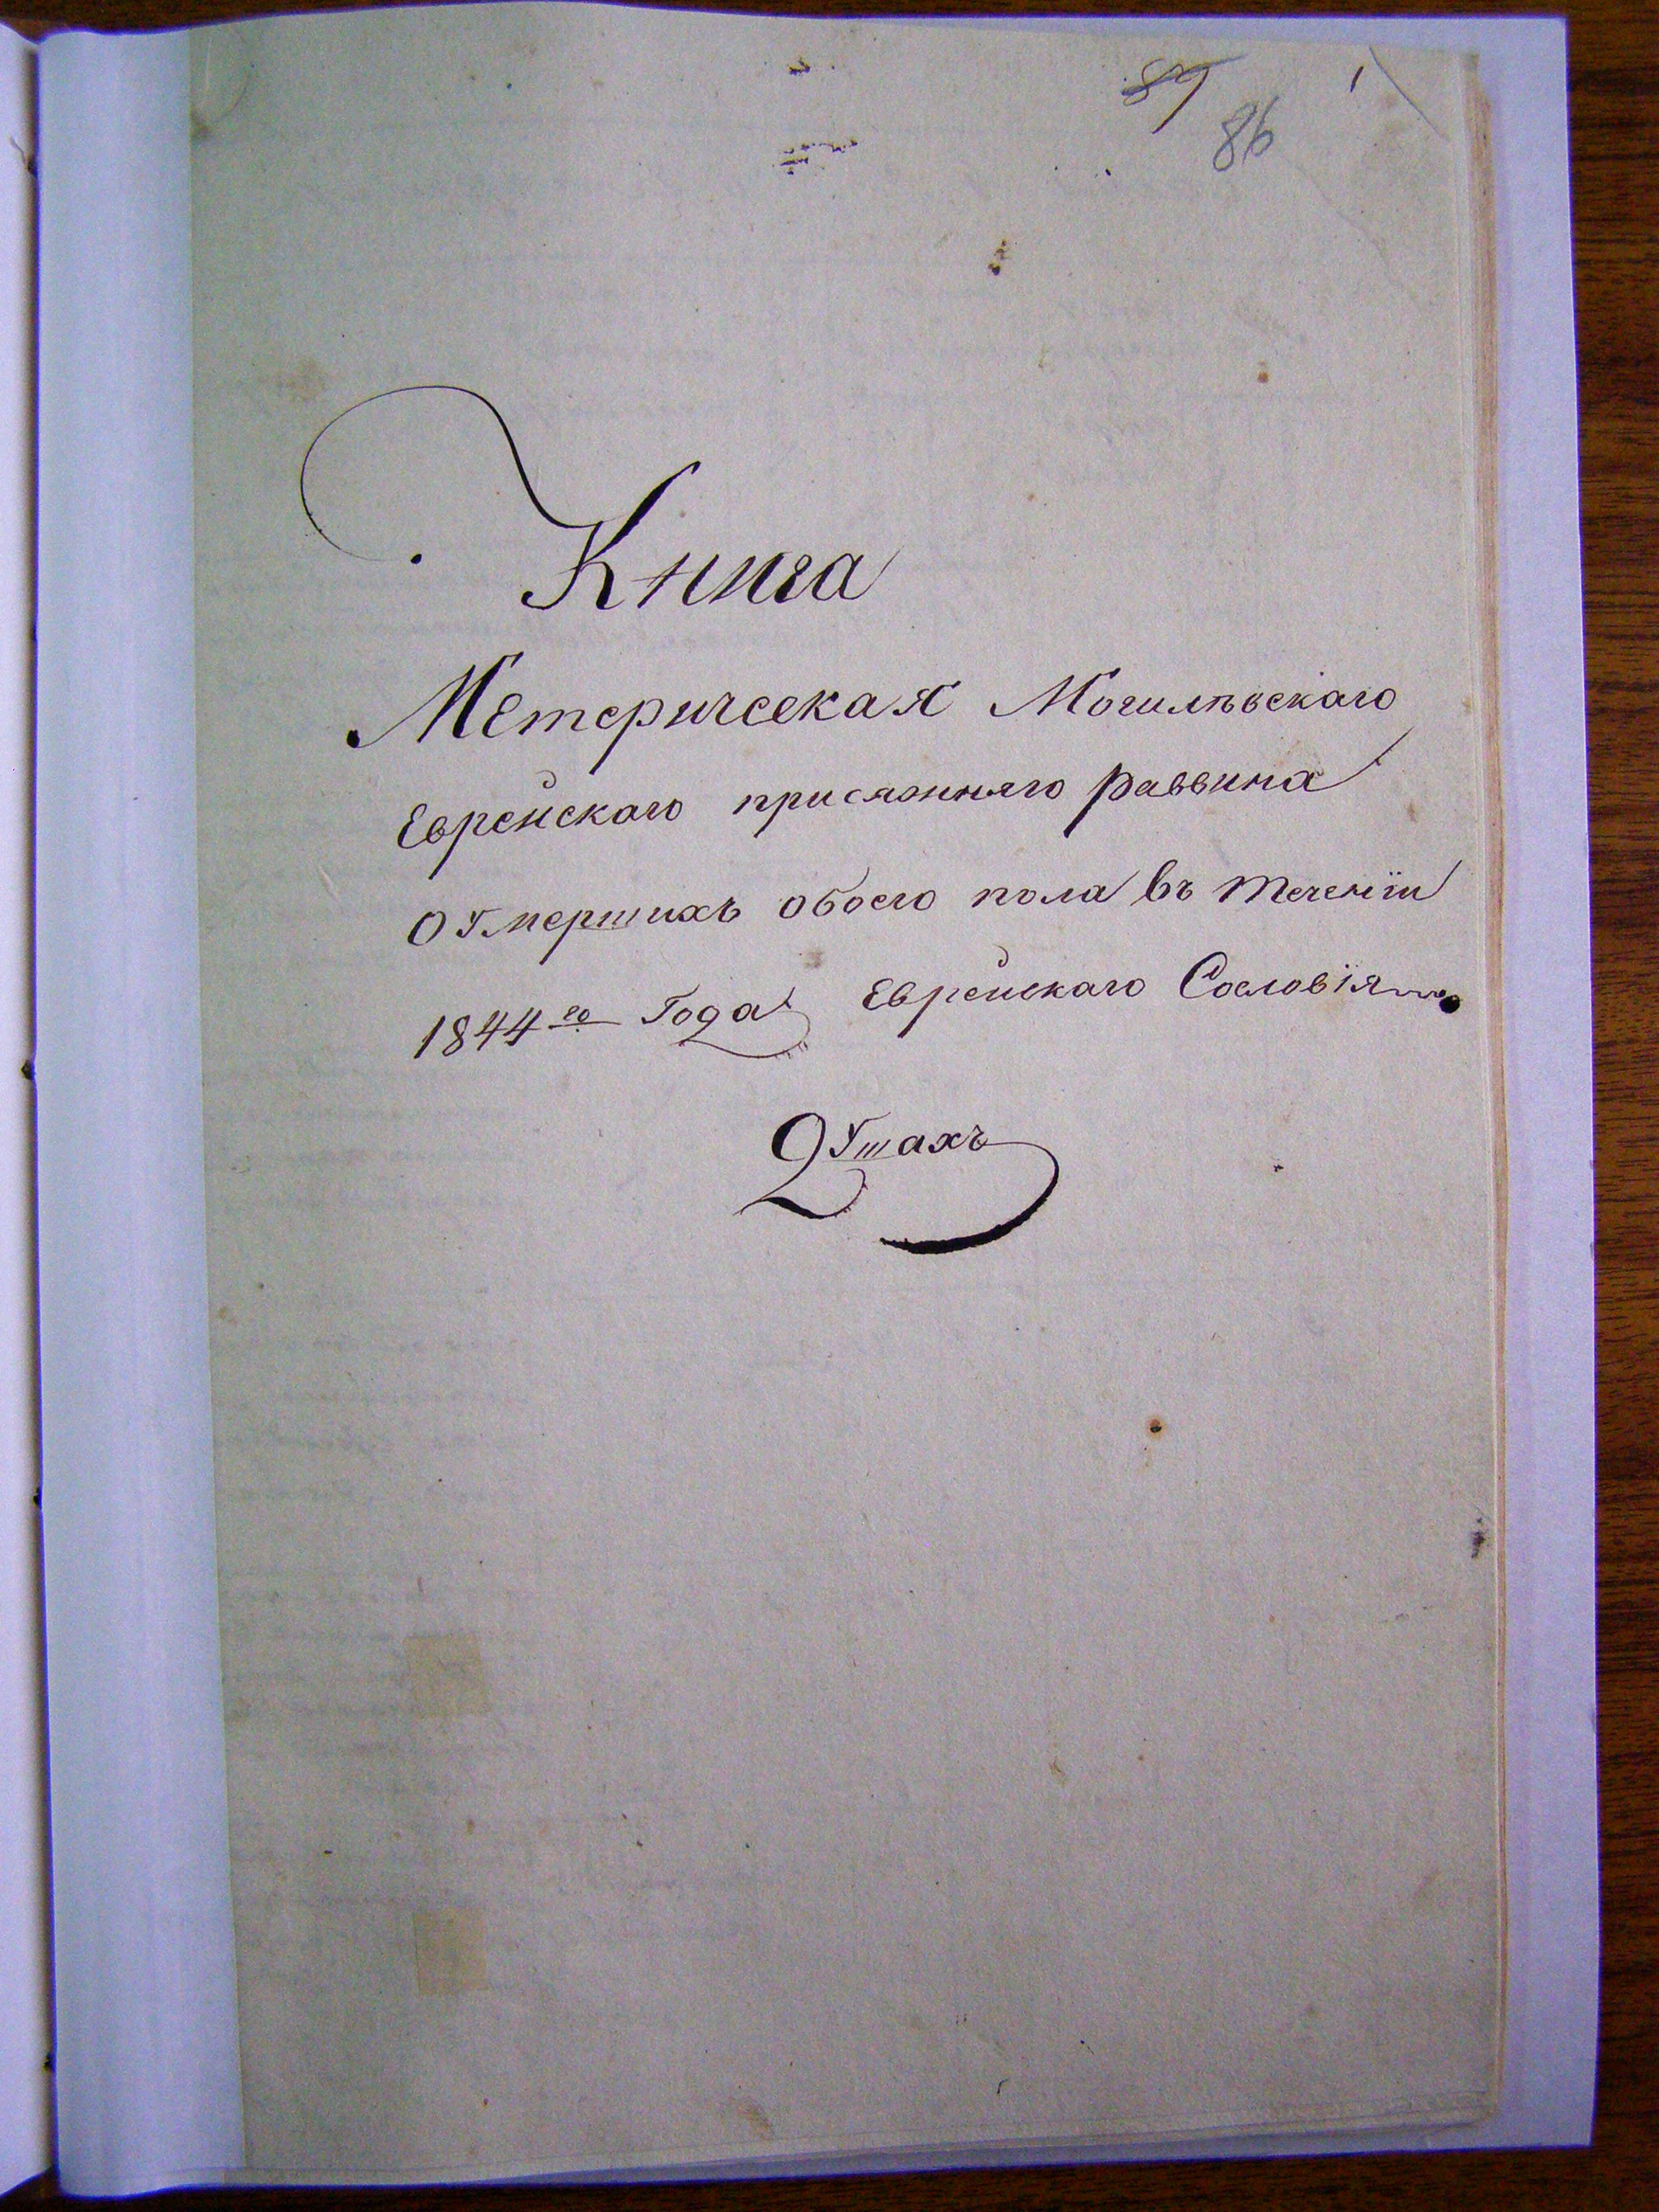 87 1
86
Книга
Метеричсекая Могилѣвскаго
Еврейскаго присяжняго раввина
О Умершихъ обоего пола въ теченїи
1844го Года Еврейскаго Сословїя
2 Ушахъ